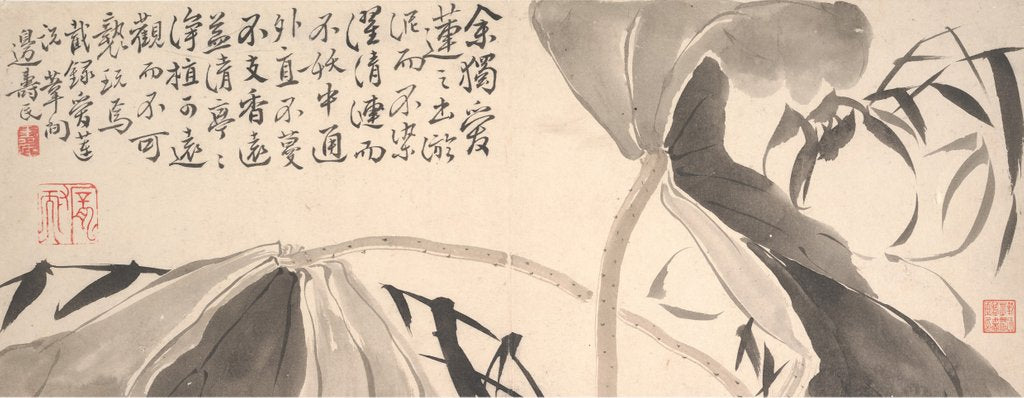 余獨愛
蓮之出淤
泥而不染
濯清漣而
不妖中通
外直不蔓
不支香遠
益清亭〻
淨植可遠
觀而不可
褻玩焉
截録愛蓮
説 葦間
邊壽民